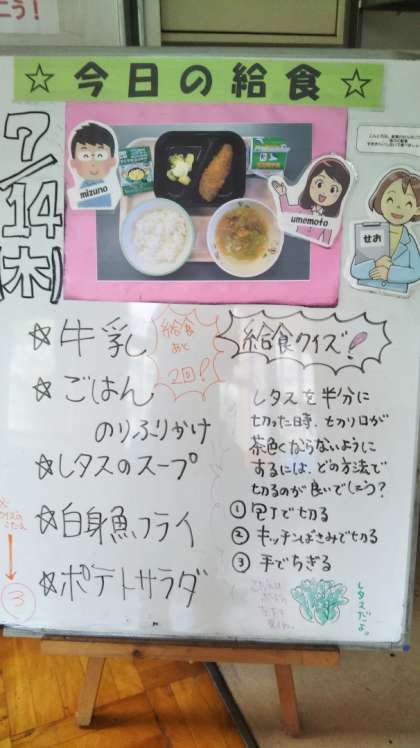 ☆今日の給食☆
7/14(木)
mizuno
umemoto
せお
☆牛乳
☆ごはん
のりふりかけ
☆レタスのスープ
☆白身魚フライ
☆ポテトサラダ
給食
あと
2回!
給食クイズ!
レタスを半分に
切った時、切り口が
茶色くならないように
するには、どの方法で
切るのが良いでしょう?
① 包丁で切る
② キッチンばさみで切る
③ 手でちぎる
レタスだよ。
③